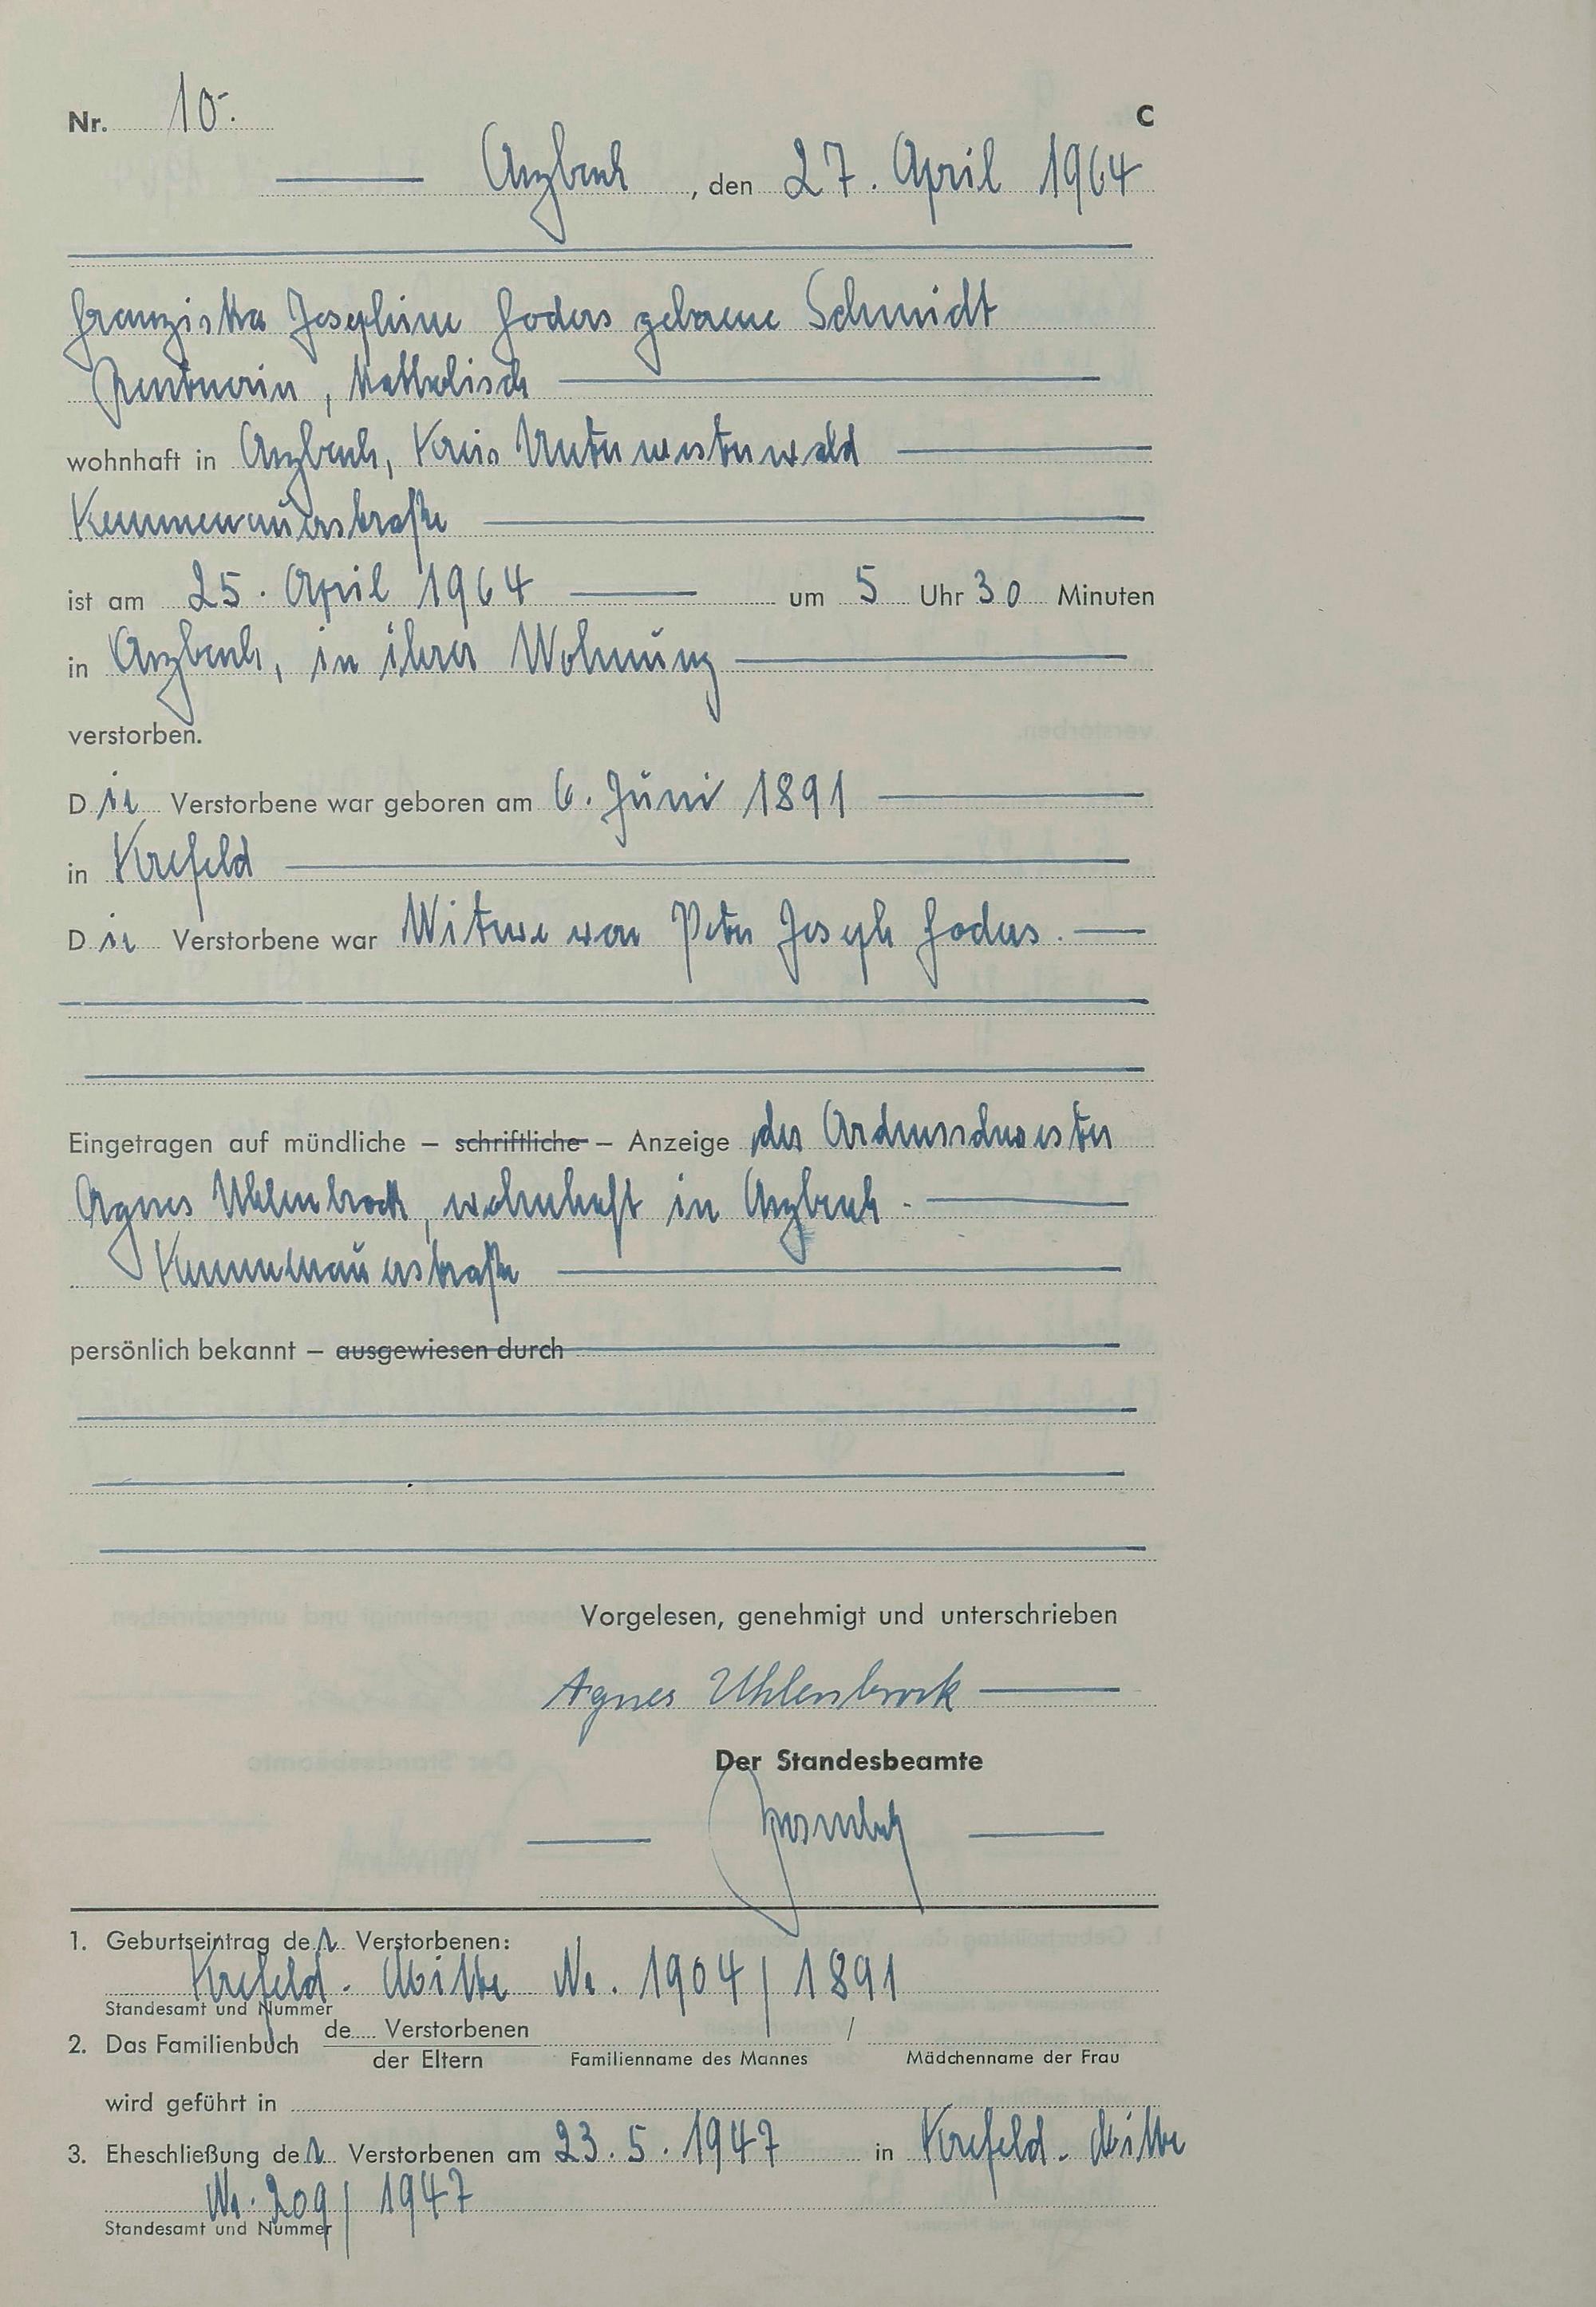 Nr. 10.
C
Arzbach, den 27. April 1964
Franziska Josephine Foders geborene Schmidt
Rentnerin, katholisch
wohnhaft in Arzbach, Kreis Unterwesterwald
Kemmenauerstraße
ist am 25. April 1964 um 5 Uhr 30 Minuten
in Arzbach, in ihrer Wohnung
verstorben.
Die Verstorbene war geboren am 6. Juni 1891
in Krefeld
Die Verstorbene war Witwe von Peter Joseph Foders.
Eingetragen auf mündliche – schriftliche – Anzeige der Ordensschwester
Agnes Uhlenbrock, wohnhaft in Arzbach -
Kemmenauerstraße
persönlich bekannt – ausgewiesen durch
Vorgelesen, genehmigt und unterschrieben
Agnes Uhlenbrock
Der Standesbeamte
1. Geburtseintrag der Verstorbenen:
Krefeld-Mitte Nr. 1904/1891
Standesamt und Nummer
2. Das Familienbuch de Verstorbenen /
der Eltern Familienname des Mannes Mädchenname der Frau
wird geführt in
3. Eheschließung der Verstorbenen am 23.5.1947 in Krefeld-Mitte
Nr. 209/1947
Standesamt und Nummer